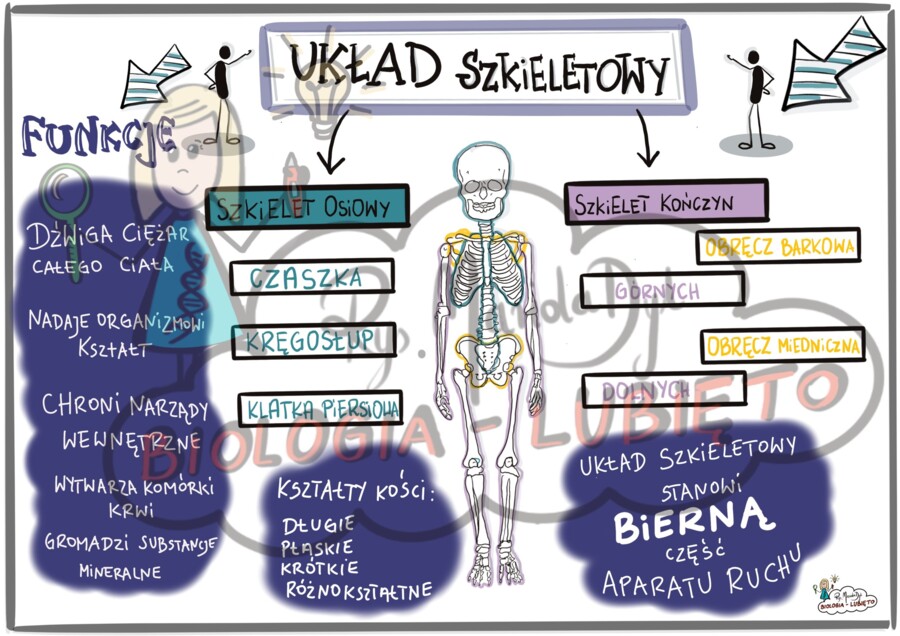 UKŁAD SZKIELETOWY
FUNKCJE
DŹWIGA CIĘŻAR
CAŁEGO CIAŁA
NADAJE ORGANIZMOWI
KSZTAŁT
CHRONI NARZĄDY
WEWNĘTRZNE
WYTWARZA KOMÓRKI
KRWI
GROMADZI SUBSTANCJE
MINERALNE
SZKIELET OSIOWY
CZASZKA
KRĘGOSŁUP
KLATKA PIERSIOWA
KSZTAŁTY KOŚCI:
DŁUGIE
PŁASKIE
KRÓTKIE
RÓŻNOKSZTAŁTNE
SZKIELET KOŃCZYN
OBRĘCZ BARKOWA
GÓRNYCH
OBRĘCZ MIEDNICZNA
DOLNYCH
UKŁAD SZKIELETOWY
STANOWI
BIERNĄ
CZĘŚĆ
APARATU RUCHU
Rys.
BIOLOGIA - LUBIĘTO
BIOLOGIA - LUBIĘTO